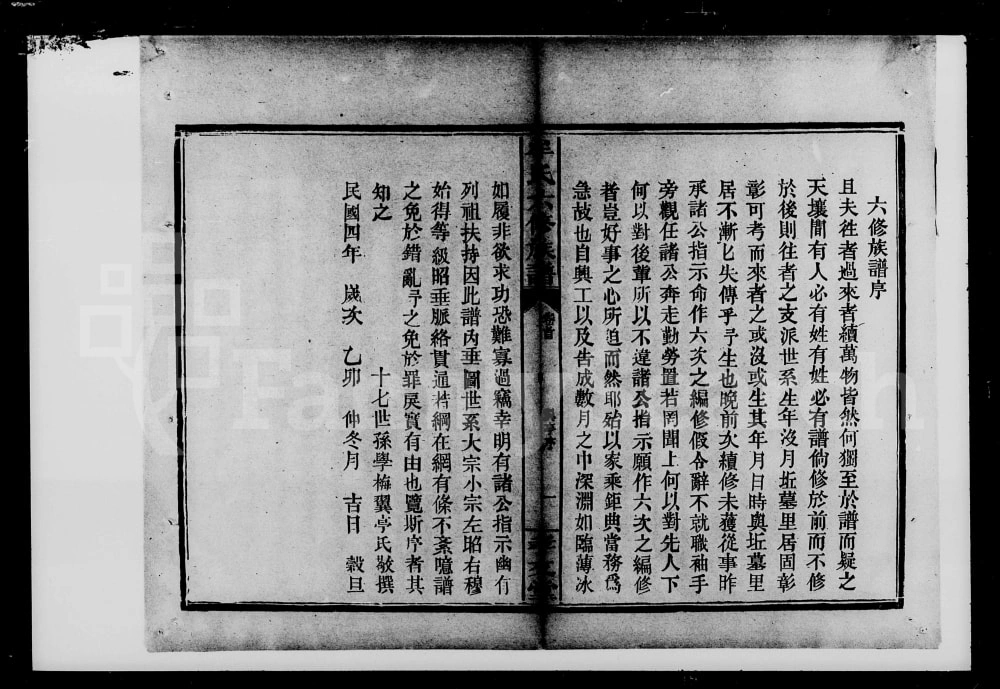 六修族譜序
且夫徃者過來者續萬物皆然何獨至於譜而疑之
天壤間有人必有姓有姓必有譜倘修於前而不修
於後則往者之支派世系生年沒月坵墓里居固彰
彰可考而來者之或沒或生其年月日時與坵墓里
居不漸匕失傳乎予生也晚前次續修未獲從事昨
承諸公指示命作六次之編修假令辭不就職袖手
旁觀任諸公奔走勤勞置若罔聞上何以對先人下
何以對後輩所以不違諸公指示願作六次之編修
者豈好事之心所迫而然耶殆以家乘鉅典當務爲
急故也自興工以及告成數月之中深淵如臨薄冰
氏六修族譜
卷首
序
一
如履非欲求功恐難寡過竊幸明有諸公指示幽有
列祖扶持因此譜內垂圖世系大宗小宗左昭右穆
始得等級昭垂脈絡貫通若綱在綱有條不紊噫譜
之免於錯亂予之免於罪戾實有由也覽斯序者其
知之
十七世孫學梅翼亭氏敬撰
民國四年 歲次 乙卯 仲冬月 吉日 穀旦